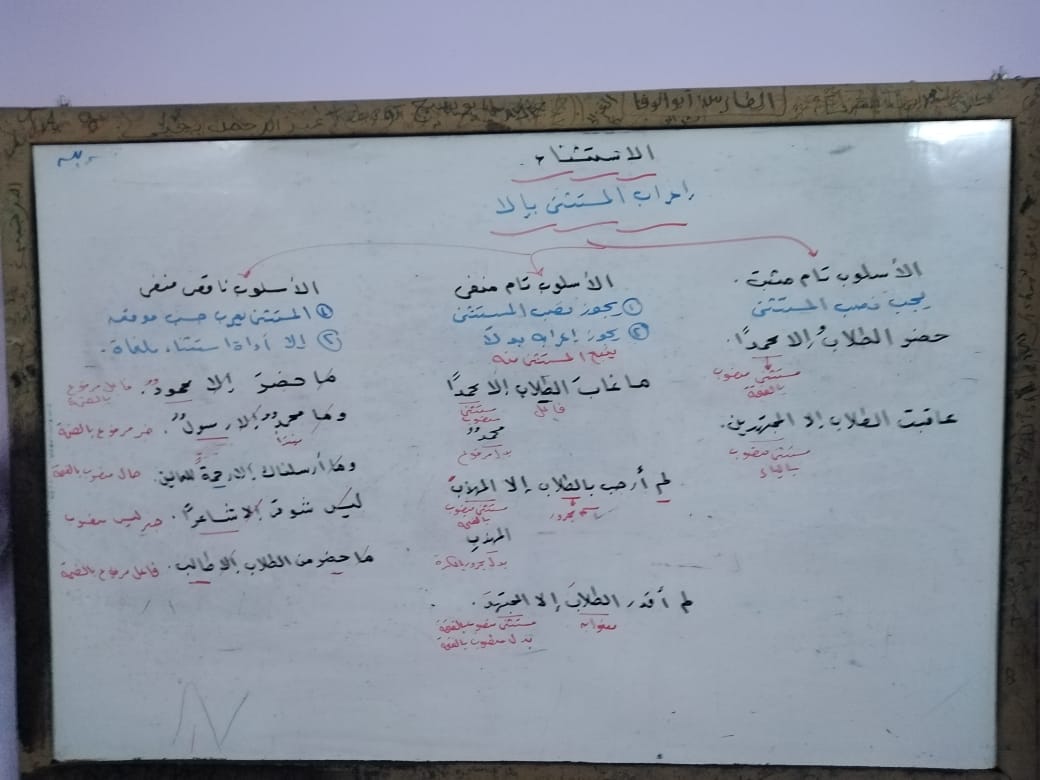 الاستثناء
إعراب المستثنى بإلا
الأسلوب تام مثبت.
يجب نصب المستثنى
حضر الطلابُ إلا محمدًا.
مستثنى منصوب
بالفتحة
عاقبت الطلاب إلا المجتهدين.
مستثنى منصوب
بالياء
الأسلوب تام منفى
① يجوز نصب المستثنى
② يجوز إعرابه بدلاً
يتبع المستثنى منه
ما غاب الطلاب إلا محمدًا
فاعل
مستثنى
منصوب
محمدٌ
بدل مرفوع
لم أرحب بالطلاب إلا المهذبَ
اسم مجرور
مستثنى منصوب
بالفتحة
المهذبِ
بدل مجرور بالكسرة
لم أقدر الطلابَ إلا المجتهدَ.
مفعول به
مستثنى منصوب بالفتحة
بدل منصوب بالفتحة
الأسلوب ناقص منفى
① المستثنى يعرب حسب موقعه
② إلا أداة استثناء ملغاة.
ما حضرَ إلا محمودٌ. فاعل مرفوع
بالضمة
وما محمدٌ إلا رسولٌ. خبر مرفوع بالضمة
مبتدأ
وما أرسلناك إلا رحمةً للعالمين. حال منصوب بالفتحة
ليس شوقى إلا شاعرًا. خبر ليس منصوب
ما حضر من الطلاب إلا طالب. فاعل مرفوع بالضمة